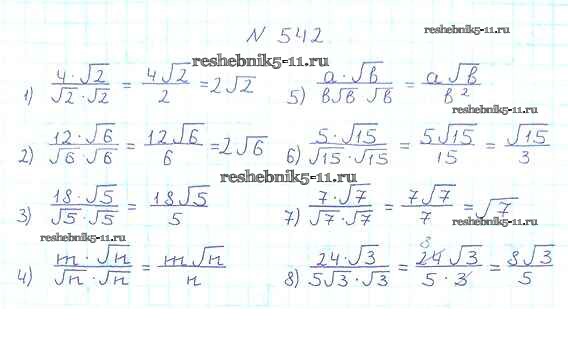 N 542
reshebnik5-11.ru
reshebnik5-11.ru
1) (4·√2)/(√2·√2) = (4√2)/2 = 2√2
5) (a·√b)/(b√b √b) = (a√b)/b²
reshebnik5-11.ru
2) (12·√6)/(√6·√6) = (12√6)/6 = 2√6
6) (5·√15)/(√15·√15) = (5√15)/15 = √15/3
reshebnik5-11.ru
3) (18·√5)/(√5·√5) = (18√5)/5
7) (7·√7)/(√7·√7) = (7√7)/7 = √7
reshebnik5-11.ru
reshebnik5-11.ru
4) (m·√n)/(√n·√n) = (m√n)/n
8) (24·√3)/(5√3·√3) = (24√3)/(5·3) = (8√3)/5
8